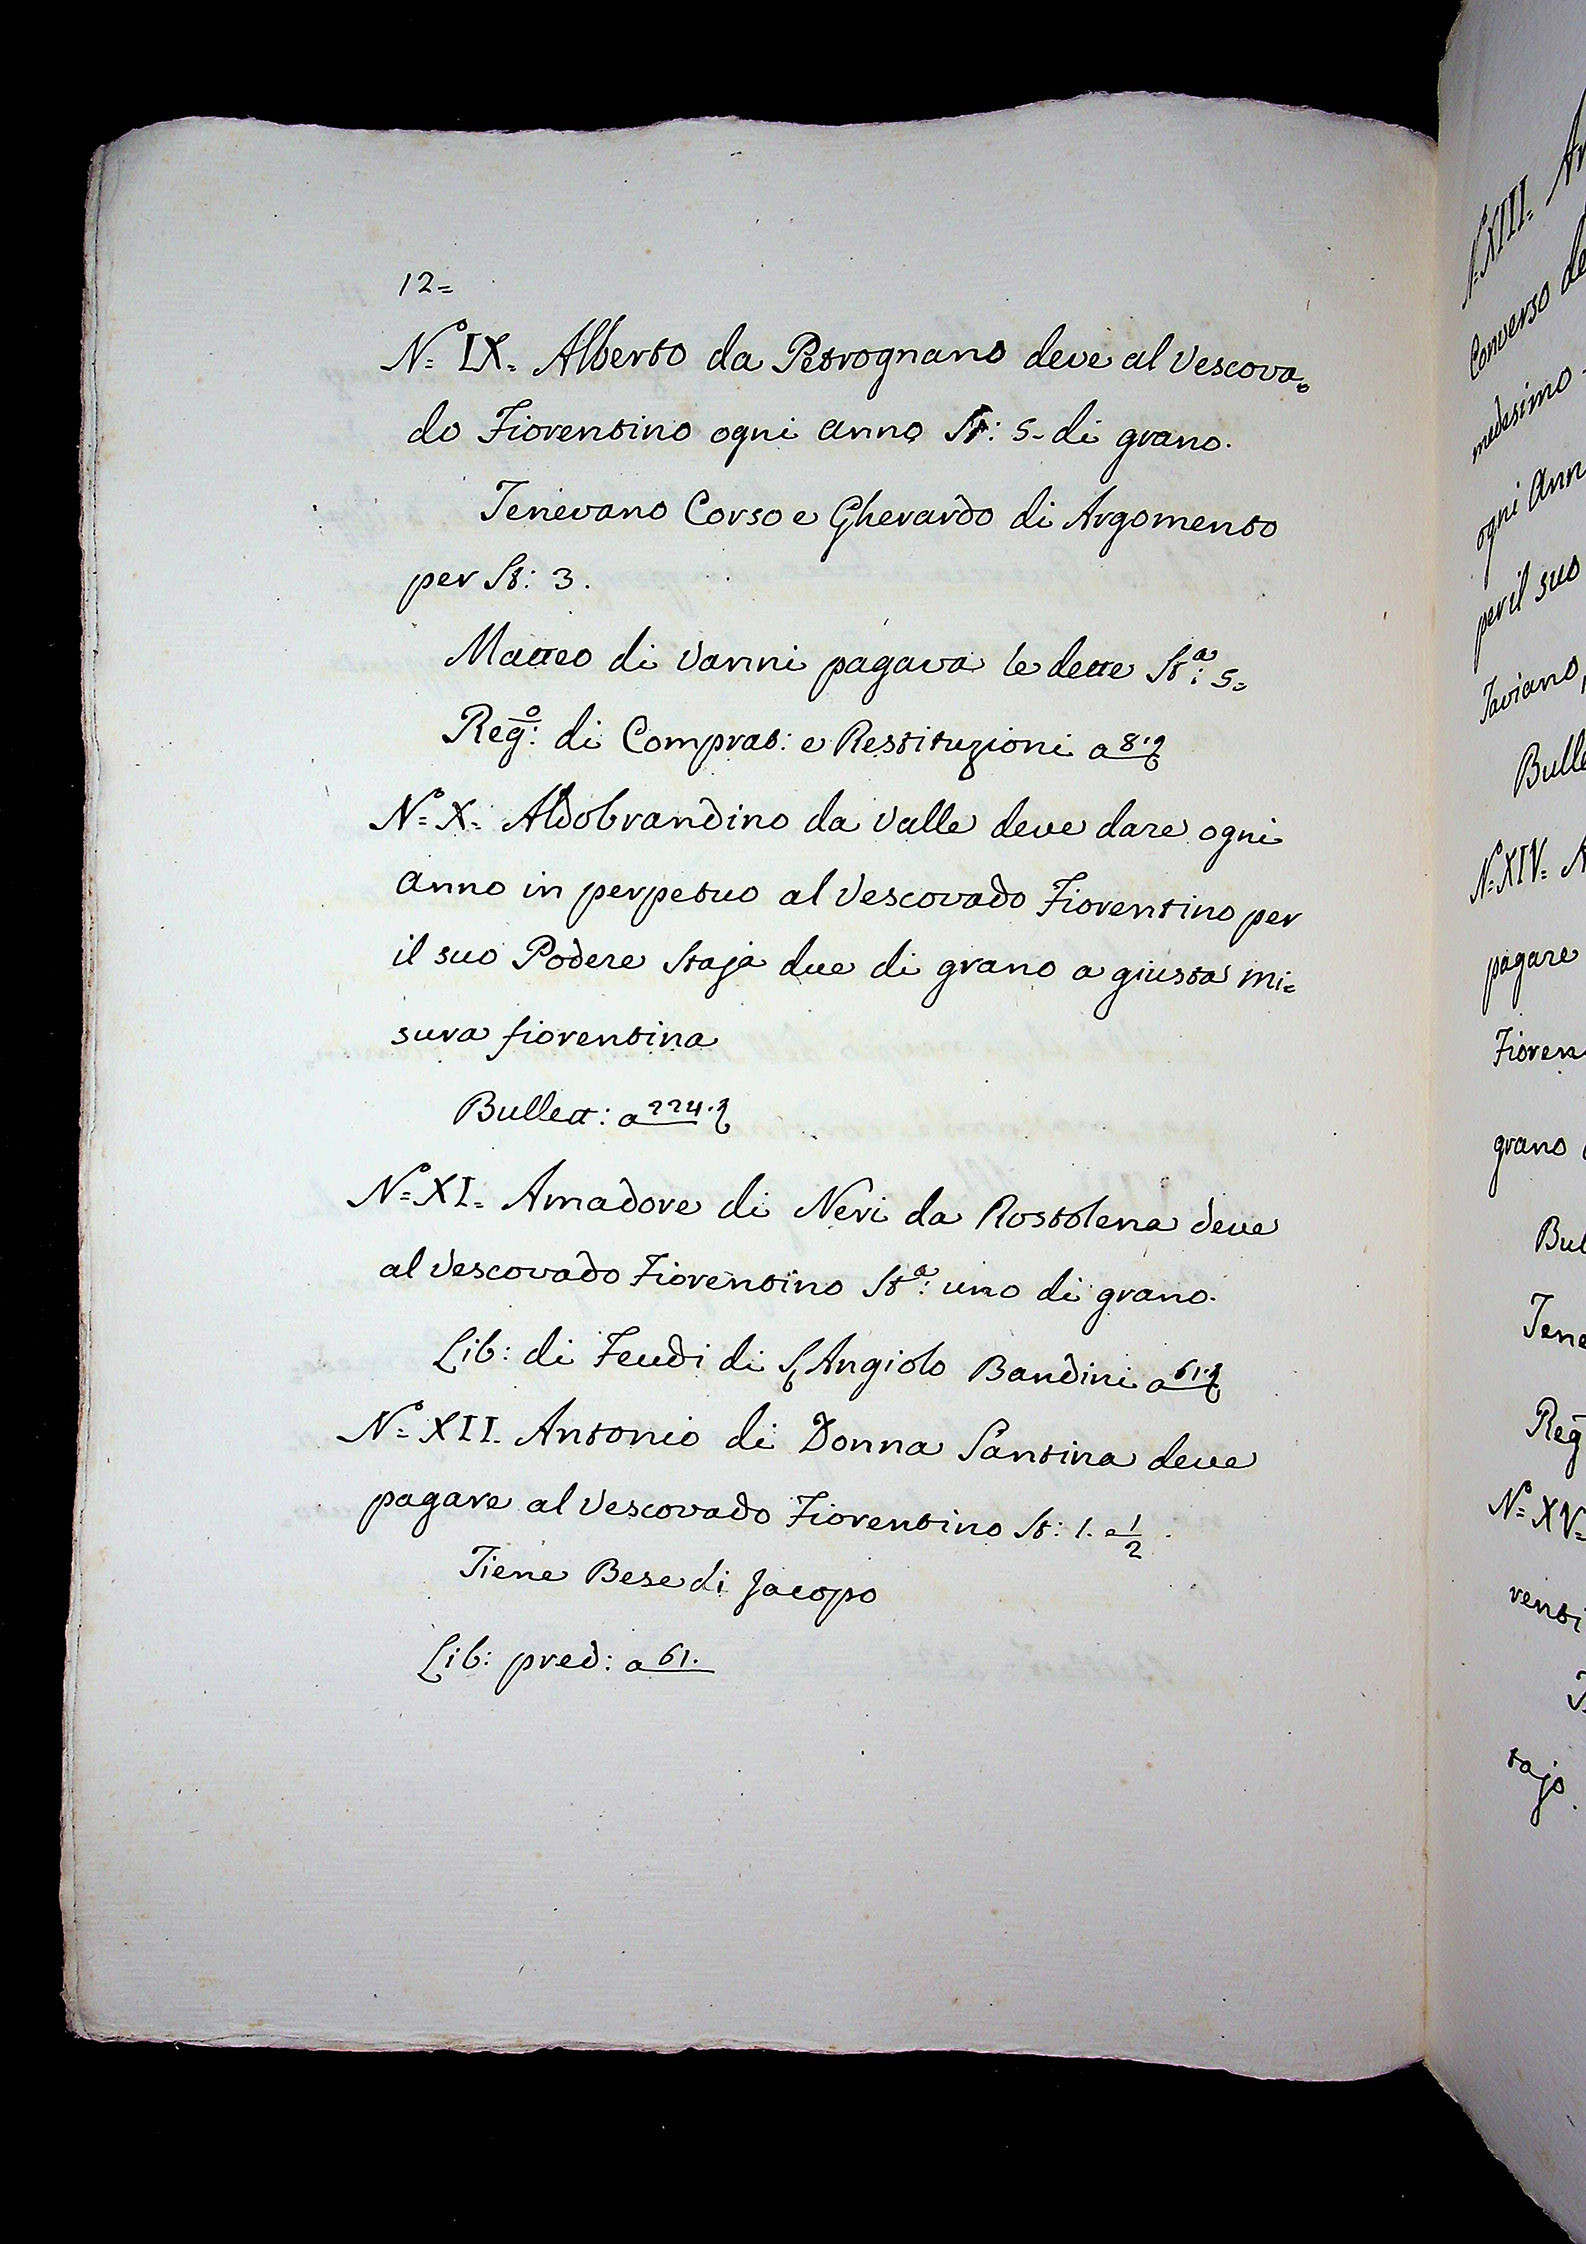 12=
N.º IX. Alberto da Petrognano deve al Vescova=
do Fiorentino ogni anno St: 5. di grano.
Tenevano Corso e Gherardo di Argomento
per St: 3.
Matteo di Vanni pagava le dette St.ª: 5=
Reg.º: di Comprat: e Restituzioni a 8.
N.º X. Aldobrandino da Valle deve dare ogni
anno in perpetuo al Vescovado Fiorentino per
il suo Podere Staja due di grano a giusta mi=
sura fiorentina
Bullett: a 224.
N.º XI. Amadore di Neri da Rostolena deve
al Vescovado Fiorentino St.ª: uno di grano.
Lib: di Feudi di S. Angiolo Bandini a 61.
N.º XII. Antonio di Donna Santina deve
pagare al Vescovado Fiorentino St: 1. e 1/2.
Tiene Bese di Jacopo
Lib: pred: a 61.
N.º XIII.
Converso
medesimo
ogni Ann
per il suo
Taviano,
Bulle
N.º XIV.
pagare
Fioren
grano
Bul
Tene
Reg
N.º XV=
renti
tajo.